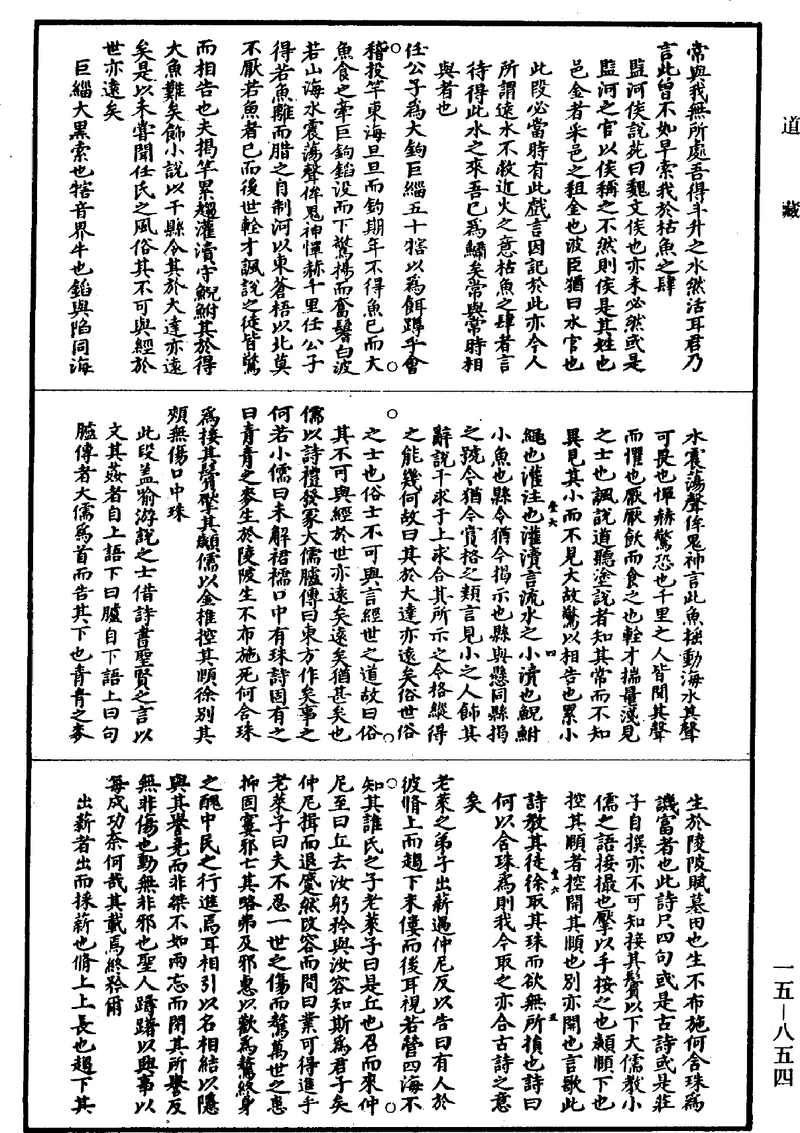 道藏
常與我無所處吾得斗升之水然活耳君乃
言此曾不如早索我於枯魚之肆
監河侯說苑曰魏文侯也亦未必然或是
監河之官以侯稱之不然則侯是其姓也
邑金者采邑之租金也波臣猶曰水官也
此段必當時有此戲言因記於此亦今人
所謂遠水不救近火之意枯魚之肆者言
待得此水之來吾已為鱐矣常與常時相
與者也
任公子為大鉤巨緇五十犗以為餌蹲乎會
稽投竿東海旦旦而釣期年不得魚已而大
魚食之牽巨鉤錎沒而下驚揚而奮鬐白波
若山海水震蕩聲侔鬼神憚赫千里任公子
得若魚離而腊之自制河以東蒼梧以北莫
不厭若魚者已而後世輇才諷說之徒皆驚
而相告也夫揭竿累趨灌瀆守鯢鮒其於得
大魚難矣飾小說以干縣令其於大達亦遠
矣是以未嘗聞任氏之風俗其不可與經於
世亦遠矣
巨緇大黑索也犗音界牛也錎與陷同海
水震蕩聲侔鬼神言此魚搖動海水其聲
可畏也憚赫驚恐也千里之人皆聞其聲
而懼也厭厭飫而食之也輇才揣量淺見
之士也諷說道聽塗說者知其常而不知
異見其小而不見大故驚以相告也累小
繩也灌注也灌瀆言流水之小瀆也鯢鮒
小魚也縣令猶今揭示也縣與懸同縣揭
之號令猶今賞格之類言見小之人飾其
辭說干求于上求合其所示之令格縱得
之能幾何故曰其於大達亦遠矣俗世俗
之士也俗士不可與言經世之道故曰俗
其不可與經於世亦遠矣遠矣猶甚矣也
儒以詩禮發冢大儒臚傳曰東方作矣事之
何若小儒曰未解裙襦口中有珠詩固有之
曰青青之麥生於陵陂生不布施死何含珠
為接其鬢擪其顪儒以金椎控其頤徐別其
頰無傷口中珠
此段蓋喻游說之士借詩書聖賢之言以
文其姦者自上語下曰臚自下語上曰句
臚傳者大儒為首而告其下也青青之麥
生於陵陂賦墓田也生不布施何含珠為
譏富者也此詩只四句或是古詩或是莊
子自撰亦不可知接其鬢以下大儒教小
儒之語接撮也擪以手按之也顪頤下也
控其頤者控開其頤也別亦開也言歌此
詩教其徒徐取其珠而欲無所損也詩曰
何以含珠為則我今取之亦合古詩之意
矣
老萊之弟子出薪遇仲尼反以告曰有人於
彼脩上而趨下末僂而後耳視若營四海不
知其誰氏之子老萊子曰是丘也召而來仲
尼至曰丘去汝躬矜與汝容知斯為君子矣
仲尼揖而退蹙然改容而問曰業可得進乎
老萊子曰夫不忍一世之傷而驁萬世之患
抑固窶邪亡其略弗及邪惠以歡為驁終身
之醜中民之行進焉耳相引以名相結以隱
與其譽堯而非桀不如兩忘而閉其所譽反
無非傷也動無非邪也聖人躊躇以興事以
每成功奈何哉其載焉終矜爾
出薪者出而採薪也脩上上長也趨下其
一五—八五四